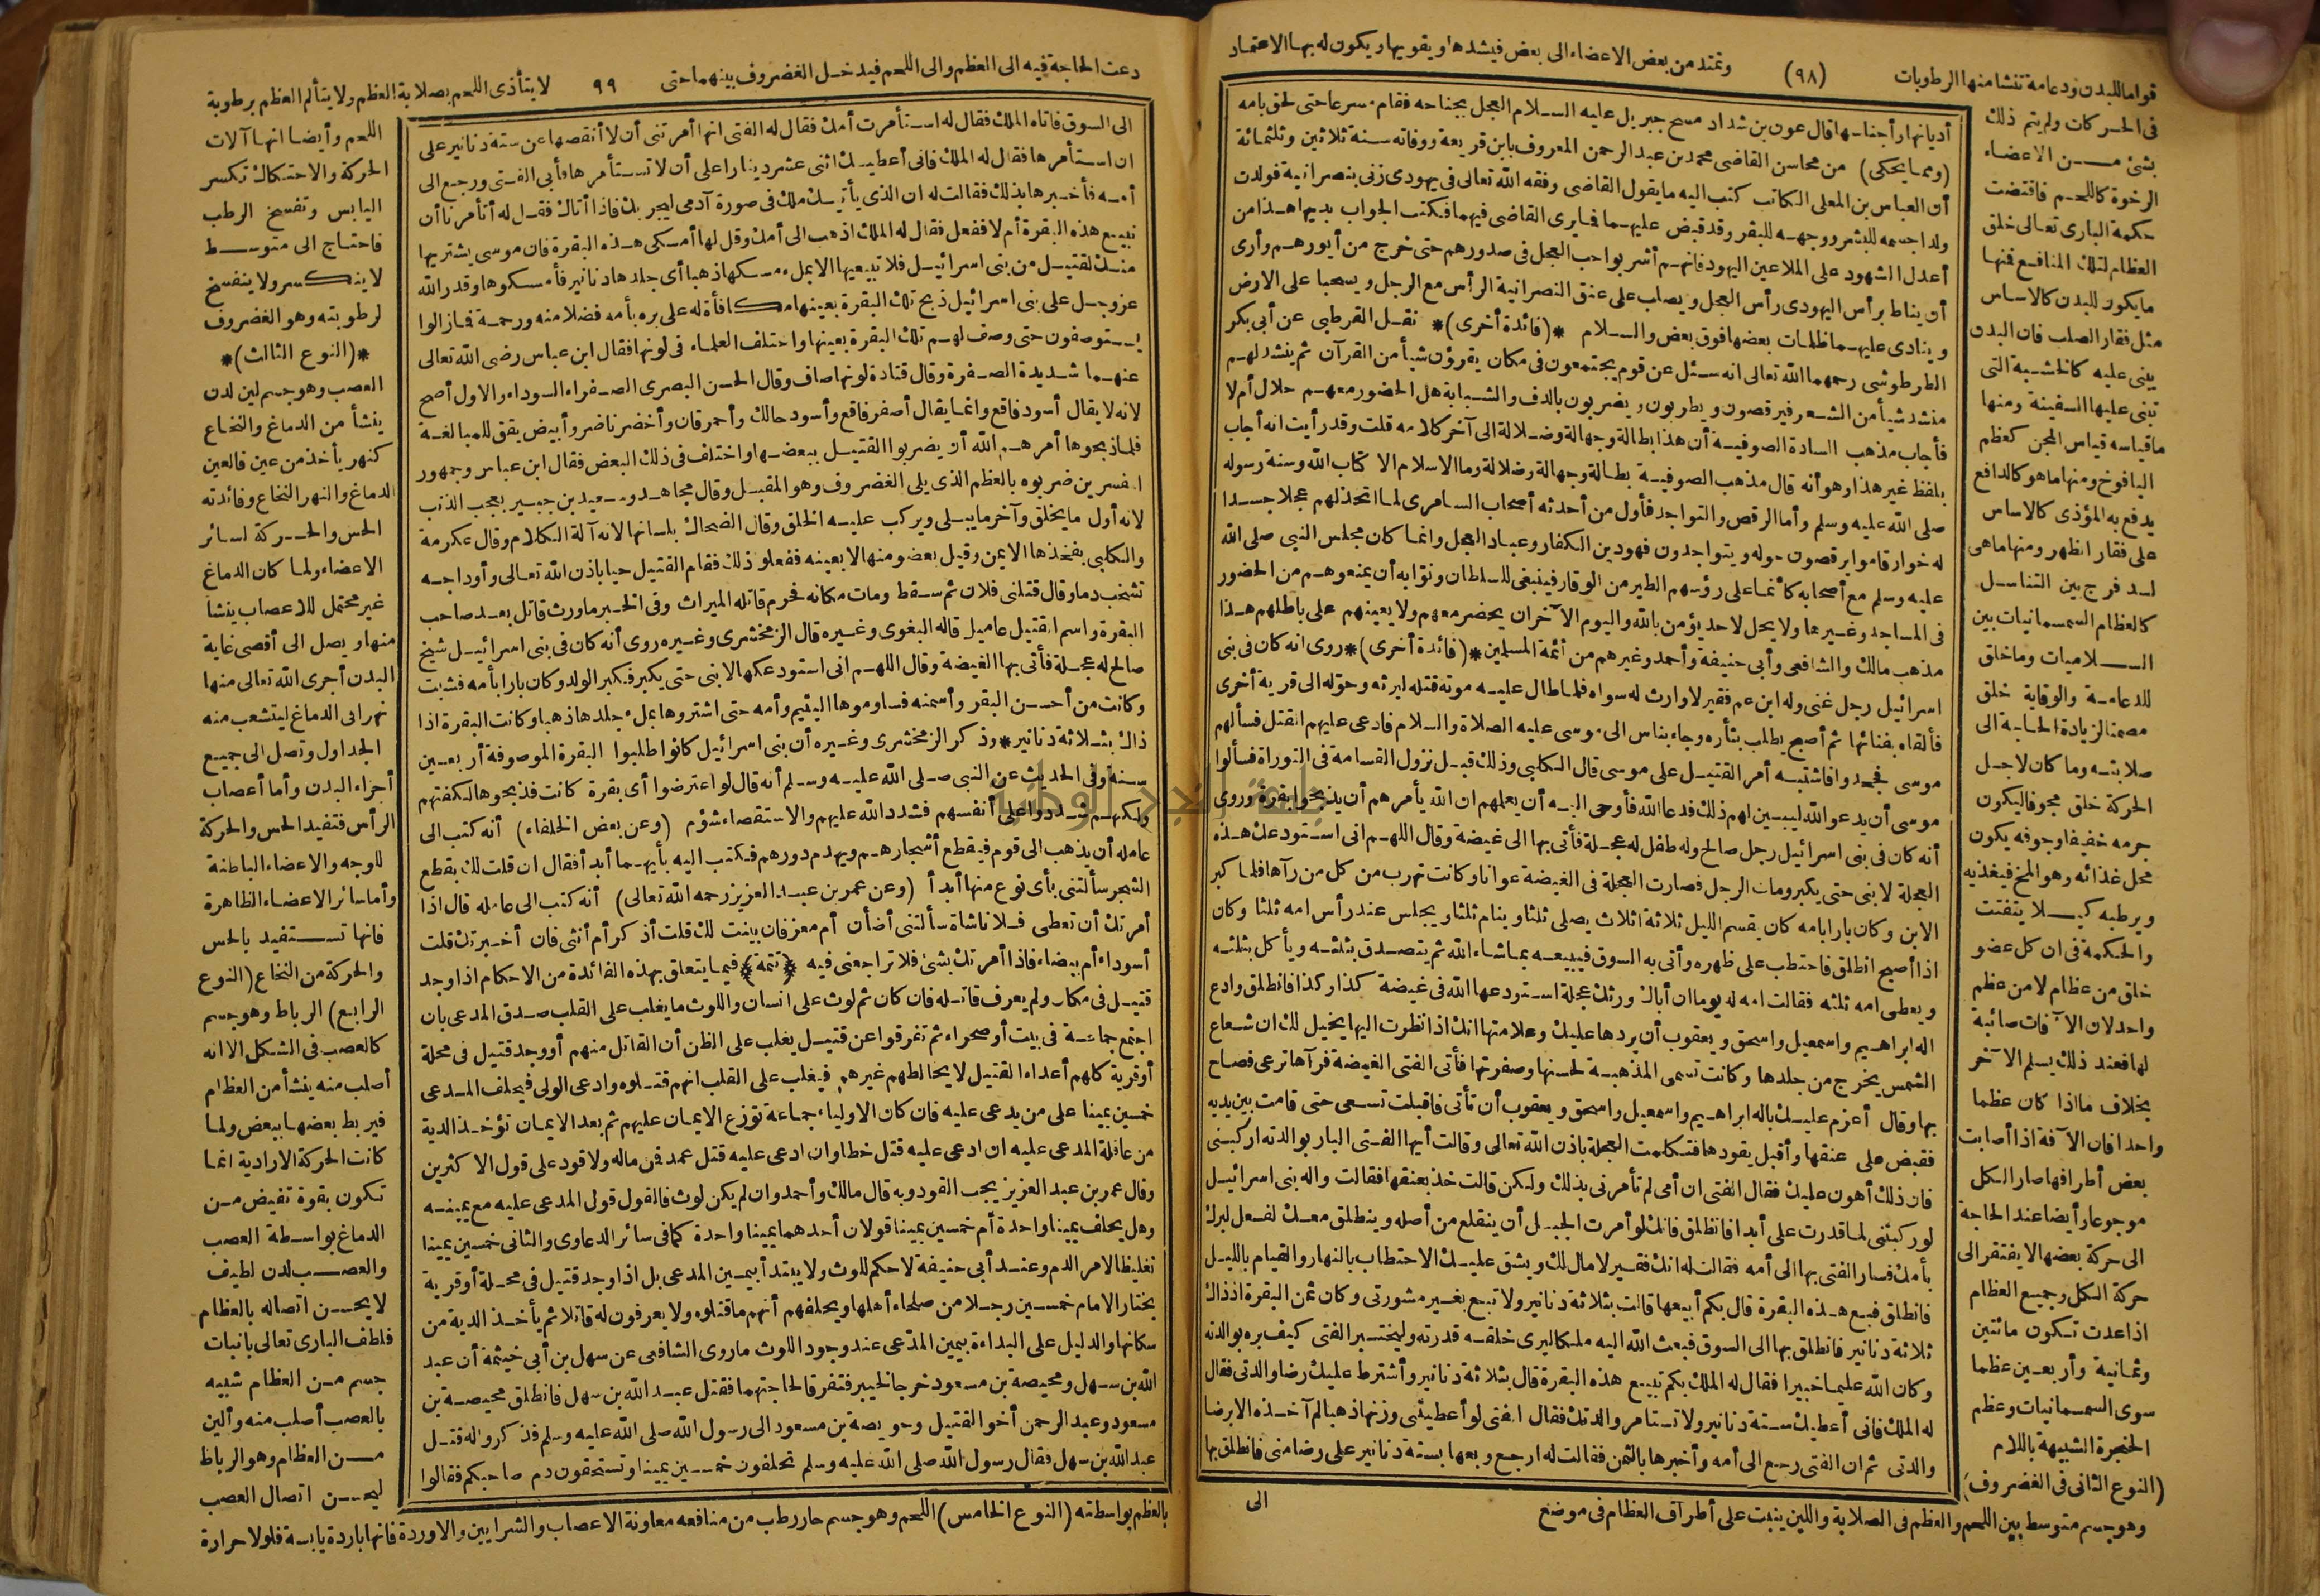 وتمتد من بعض الاعضاء الى بعض فيشدها ويقويها ويكون له بها الاعتماد
(٩٨)
قواما للبدن ودعامة تنشا منها الرطوبات
أديانها وأجناسها قال عون بن شداد مسح جبريل عليه السلام العجل بجناحه فقام مسرعا حتى لحق بامه
(ومما يحكى) من محاسن القاضى محمد بن عبد الرحمن المعروف بابن قريعة ووفاته سنة ثلاثين وثلثمائة
أن العباس بن المعلى الكاتب كتب اليه ما يقول القاضى وفقه الله تعالى فى يهودى زنى بنصرانية فولدت
ولدا جسمه للبشر ووجهه للبقر وقد قبض عليهما فما يرى القاضى فيهما فكتب الجواب بديها هذا من
أعدل الشهود على الملاعين اليهود فانهم أشربوا حب العجل فى صدورهم حتى خرج من أيورهم وأرى
أن يناط برأس اليهودى رأس العجل ويصلب على عنق النصرانية الرأس مع الرجل ويسحبا على الارض
وينادى عليهما ظلمات بعضها فوق بعض والسلام *(فائدة أخرى)* نقل القرطبى عن أبى بكر
الطرطوشى رحمهما الله تعالى انه سئل عن قوم يجتمعون فى مكان يقرؤن شيأ من القرآن ثم ينشد لهم
منشد شيأ من الشعر فيرقصون ويطربون ويضربون بالدف والشبابة هل الحضور معهم حلال أم لا
فأجاب مذهب السادة الصوفية أن هذا بطالة وجهالة وضلالة الى آخر كلامه قلت وقد رأيت انه أجاب
بلفظ غير هذا وهو أنه قال مذهب الصوفية بطالة وجهالة وضلالة وما الاسلام الا كتاب الله وسنة رسوله
صلى الله عليه وسلم وأما الرقص والتواجد فأول من أحدثه أصحاب السامرى لما اتخذ لهم عجلا جسدا
له خوار قاموا يرقصون حوله ويتواجدون فهو دين الكفار وعباد العجل وانما كان مجلس النبى صلى الله
عليه وسلم مع أصحابه كأنما على رؤسهم الطير من الوقار فينبغى للسلطان ونوّابه أن يمنعوهم من الحضور
فى المساجد وغيرها ولا يحل لاحد يؤمن بالله واليوم الآخر ان يحضر معهم ولا يعينهم على باطلهم هذا
مذهب مالك والشافعى وأبى حنيفة وأحمد وغيرهم من أئمة المسلمين *(فائدة أخرى)* روى انه كان فى بنى
اسرائيل رجل غنى وله ابن عم فقير لا وارث له سواه فلما طال عليه موته قتله ليرثه وحوّله الى قرية أخرى
فألقاه بفنائها ثم أصبح يطلب بثأره وجاء بناس الى موسى عليه الصلاة والسلام فادعى عليهم القتل فسألهم
موسى فجحدوا فاشتبه أمر القتيل على موسى قال الكلبى وذلك قبل نزول القسامة فى التوراة فسألوا
موسى أن يدعو الله ليبين لهم ذلك فدعا الله فأوحى اليه أن يعلمهم ان الله يأمرهم أن يذبحوا بقرة وروى
أنه كان فى بنى اسرائيل رجل صالح وله طفل له عجلة فأتى بها الى غيضة وقال اللهم انى استودعك هذه
العجلة لابنى حتى يكبر ومات الرجل فصارت العجلة فى الغيضة عوانا وكانت تهرب من كل من رآها فلما كبر
الابن وكان بارا بامه كان يقسم الليل ثلاثة أثلاث يصلى ثلثا وينام ثلثا ويجلس عند رأس امه ثلثا وكان
اذا أصبح انطلق فاحتطب على ظهره وأتى به السوق فيبيعه بما شاء الله ثم يتصدق بثلثه ويأكل بثلثه
ويعطى امه ثلثه فقالت امه له يوما ان أباك ورثك عجلة استودعها الله فى غيضة كذا وكذا فانطلق وادع
اله ابراهيم واسمعيل واسحق ويعقوب أن يردها عليك وعلامتها انك اذا نظرت اليها يخيل لك ان شعاع
الشمس يخرج من جلدها وكانت تسمى المذهبة لحسنها وصفرتها فأتى الفتى الغيضة فرآها ترعى فصاح
بها وقال أعزم عليك باله ابراهيم واسمعيل واسحق ويعقوب أن تأتى فاقبلت تسعى حتى قامت بين يديه
فقبض على عنقها وأقبل يقودها فتكلمت العجلة باذن الله تعالى وقالت أيها الفتى البار بوالدته اركبنى
فان ذلك أهون عليك فقال الفتى ان أمى لم تأمرنى بذلك ولكن قالت خذ بعنقها فقالت واله بنى اسرائيل
لو ركبتنى لما قدرت على أبدا فانطلق فانك لو أمرت الجبل أن ينقلع من أصله وينطلق معك لفعل لبرك
بأمك فسار الفتى بها الى أمه فقالت له انك فقير لا مال لك ويشق عليك الاحتطاب بالنهار والقيام بالليل
فانطلق فبع هذه البقرة قال بكم أبيعها قالت بثلاثة دنانير ولا تبع بغير مشورتى وكان ثمن البقرة اذ ذاك
ثلاثة دنانير فانطلق بها الى السوق فبعث الله اليه ملكا ليرى خلقه قدرته وليختبر الفتى كيف بره بوالدته
وكان الله عليما خبيرا فقال له الملك بكم تبيع هذه البقرة قال بثلاثة دنانير وأشترط عليك رضا والدتى فقال
له الملك فانى أعطيك ستة دنانير ولا تستامر والدتك فقال الفتى لو أعطيتنى وزنها ذهبا لم آخذه الا برضا
والدتى ثم ان الفتى رجع الى أمه وأخبرها بالثمن فقالت له ارجع وبعها بستة دنانير على رضا منى فانطلق بها
الى
فى الحركات ولم يتم ذلك
بشئ من الاعضاء
الرخوة كاللحم فاقتضت
حكمة البارى تعالى خلق
العظام لتلك المنافع فمنها
ما يكون للبدن كالاساس
مثل فقار الصلب فان البدن
يبنى عليه كالخشبة التى
تبنى عليها السفينة ومنها
ما قياسه قياس المجن كعظم
اليافوخ ومنها ما هو كالدافع
يدفع به المؤذى كالاساس
على فقار الظهر ومنها ما هى
لسد فرج بين التناسل
كالعظام السمسمانيات بين
السلاميات وما خلق
للدعامة والوقاية خلق
مصمتا لزيادة الحماية الى
صلابته وما كان لاجل
الحركة خلق مجوفا ليكون
جرمه خفيفا وجوفه يكون
محل غذائه وهو المخ فيغذيه
ويرطبه كيلا يتفتت
والحكمة فى ان كل عضو
خلق من عظام لا من عظم
واحد لان الآفات صائبة
لها فعند ذلك يسلم الآخر
بخلاف ما اذا كان عظما
واحدا فان الآفة اذا أصابت
بعض أطرافها صار الكل
موجوعا وأيضا عند الحاجة
الى حركة بعضها لا يفتقر الى
حركة الكل وجميع العظام
اذا عدت تكون مائتين
وثمانية وأربعين عظما
سوى السمسمانيات وعظم
الحنجرة الشبيهة باللام
(النوع الثانى فى الغضروف)
وهو جسم متوسط بين اللحم والعظم فى الصلابة واللين ينبت على أطراف العظام فى موضع
دعت الحاجة فيه الى العظم والى اللحم فيدخل الغضروف بينهما حتى
٩٩
لا يتأذى اللحم بصلابة العظم ولا يتألم العظم برطوبة
الى السوق فاتاه الملك فقال له استأمرت أمك فقال له الفتى انها أمرتنى أن لا أنقصها عن ستة دنانير على
ان استأمرها فقال له الملك فانى أعطيك اثنى عشر دينارا على أن لا تستأمرها فأبى الفتى ورجع الى
أمه فأخبرها بذلك فقالت له ان الذى يأتيك ملك فى صورة آدمى ليجربك فاذا أتاك فقل له أتأمرنا أن
نبيع هذه البقرة أم لا ففعل فقال له الملك اذهب الى أمك وقل لها أمسكى هذه البقرة فان موسى يشتريها
منك لقتيل من بنى اسرائيل فلا تبيعيها الا بملء مسكها ذهبا أى جلدها دنانير فأمسكوها وقدر الله
عز وجل على بنى اسرائيل ذبح تلك البقرة بعينها مكافأة له على بره بأمه فضلا منه ورحمة فما زالوا
يستوصفون حتى وصف لهم تلك البقرة بعينها واختلف العلماء فى لونها فقال ابن عباس رضى الله تعالى
عنهما شديدة الصفرة وقال قتادة لونها صاف وقال الحسن البصرى الصفراء السوداء والاول أصح
لانه لا يقال أسود فاقع وانما يقال أصفر فاقع وأسود حالك وأحمر قان وأخضر ناضر وأبيض يقق للمبالغة
فلما ذبحوها أمرهم الله أن يضربوا القتيل ببعضها واختلف فى ذلك البعض فقال ابن عباس وجمهور
المفسرين ضربوه بالعظم الذى يلى الغضروف وهو المقتل وقال مجاهد وسعيد بن جبير بعجب الذنب
لانه أول ما يخلق وآخر ما يبلى ويركب عليه الخلق وقال الضحاك بلسانها لانه آلة الكلام وقال عكرمة
والكلبى بفخذها الايمن وقيل بعضو منها لا بعينه ففعلوا ذلك فقام القتيل حيا باذن الله تعالى وأوداجه
تشخب دما وقال قتلنى فلان ثم سقط ومات مكانه فحرم قاتله الميراث وفى الخبر ما ورث قاتل بعد صاحب
البقرة واسم القتيل عاميل قاله البغوى وغيره قال الزمخشرى وغيره روى أنه كان فى بنى اسرائيل شيخ
صالح له عجلة فأتى بها الغيضة وقال اللهم انى استودعكها لابنى حتى يكبر فكبر الولد وكان بارا بأمه فشبت
وكانت من أحسن البقر وأسمنه فساوموها اليتيم وأمه حتى اشتروها بملء جلدها ذهبا وكانت البقرة اذا
ذاك بثلاثة دنانير * وذكر الزمخشرى وغيره أن بنى اسرائيل كانوا طلبوا البقرة الموصوفة أربعين
سنة وفى الحديث عن النبى صلى الله عليه وسلم أنه قال لو اعترضوا أى بقرة كانت فذبحوها لكفتهم
ولكنهم شددوا على أنفسهم فشدد الله عليهم والاستقصاء شؤم (وعن بعض الخلفاء) أنه كتب الى
عامله أن يذهب الى قوم فيقطع أشجارهم ويهدم دورهم فكتب اليه بأيهما أبدأ فقال ان قلت لك بقطع
الشجر سألتنى بأى نوع منها أبدأ (وعن عمر بن عبد العزيز رحمه الله تعالى) أنه كتب الى عامله قال اذا
أمرتك أن تعطى فلانا شاة سألتنى أضأن أم معز فان بينت لك قلت أذكر أم أنثى فان أخبرتك قلت
أسوداء أم بيضاء فاذا أمرتك بشئ فلا تراجعنى فيه *(تتمة)* فيما يتعلق بهذه الفائدة من الاحكام اذا وجد
قتيل فى مكان ولم يعرف قاتله فان كان ثم لوث على انسان واللوث ما يغلب على القلب صدق المدعى بان
اجتمع جماعة فى بيت أو صحراء ثم تفرقوا عن قتيل يغلب على الظن أن القاتل منهم أو وجد قتيل فى محلة
أو قرية كلهم أعداء القتيل لا يخالطهم غيرهم فيغلب على القلب انهم قتلوه وادعى الولى فيحلف المدعى
خمسين يمينا على من يدعى عليه فان كان الاولياء جماعة توزع الايمان عليهم ثم بعد الايمان تؤخذ الدية
من عاقلة المدعى عليه ان ادعى عليه قتل خطا وان ادعى عليه قتل عمد فمن ماله ولا قود على قول الاكثرين
وقال عمر بن عبد العزيز يجب القود وبه قال مالك وأحمد وان لم يكن لوث فالقول قول المدعى عليه مع يمينه
وهل يحلف يمينا واحدة أم خمسين يمينا قولان أحدهما يمينا واحدة كما فى سائر الدعاوى والثانى خمسين يمينا
تغليظا لامر الدم وعند أبى حنيفة لا حكم للوث ولا يبتدأ بيمين المدعى بل اذا وجد قتيل فى محلة أو قرية
يختار الامام خمسين رجلا من صلحاء أهلها ويحلفهم أنهم ما قتلوه ولا يعرفون له قاتلا ثم يأخذ الدية من
سكانها والدليل على البداءة بيمين المدّعى عند وجود اللوث ما روى الشافعى عن سهل بن أبى خيثمة أن عبد
الله بن سهل ومحيصة بن مسعود خرجا لخيبر فتفرقا لحاجتهما فقتل عبد الله بن سهل فانطلق محيصة بن
مسعود وعبد الرحمن أخو القتيل وحويصة بن مسعود الى رسول الله صلى الله عليه وسلم فذكروا له قتل
عبد الله بن سهل فقال رسول الله صلى الله عليه وسلم تحلفون خمسين يمينا وتستحقون دم صاحبكم فقالوا
اللحم وأيضا انها آلات
الحركة والاحتكاك تكسر
اليابس وتفسخ الرطب
فاحتاج الى متوسط
لا ينكسر ولا ينفسخ
لرطوبته وهو الغضروف
*(النوع الثالث)*
العصب وهو جسم لين لدن
ينشأ من الدماغ والنخاع
كنهر يأخذ من عين فالعين
الدماغ والنهر النخاع وفائدته
الحس والحركة لسائر
الاعضاء ولما كان الدماغ
غير محتمل للاعصاب ينشأ
منها ويصل الى أقصى غاية
البدن أجرى الله تعالى منها
نهرا فى الدماغ ليتشعب منه
الجداول وتصل الى جميع
أجزاء البدن وأما أعصاب
الرأس فتفيد الحس والحركة
للوجه والاعضاء الباطنة
وأما سائر الاعضاء الظاهرة
فانها تستفيد بالحس
والحركة من النخاع (النوع
الرابع) الرباط وهو جسم
كالعصب فى الشكل الا انه
أصلب منه ينشأ من العظام
فيربط بعضها ببعض ولما
كانت الحركة الارادية انما
تكون بقوة تفيض من
الدماغ بواسطة العصب
والعصب لدن لطيف
لا يحسن اتصاله بالعظام
فلطف البارى تعالى بانبات
جسم من العظام شبيه
بالعصب أصلب منه وألين
من العظام وهو الرباط
ليحسن اتصال العصب
بالعظم بواسطته (النوع الخامس) اللحم وهو جسم حار رطب من منافعه معاونة الاعصاب والشرايين والاوردة فانها باردة يابسة فلولا حرارة